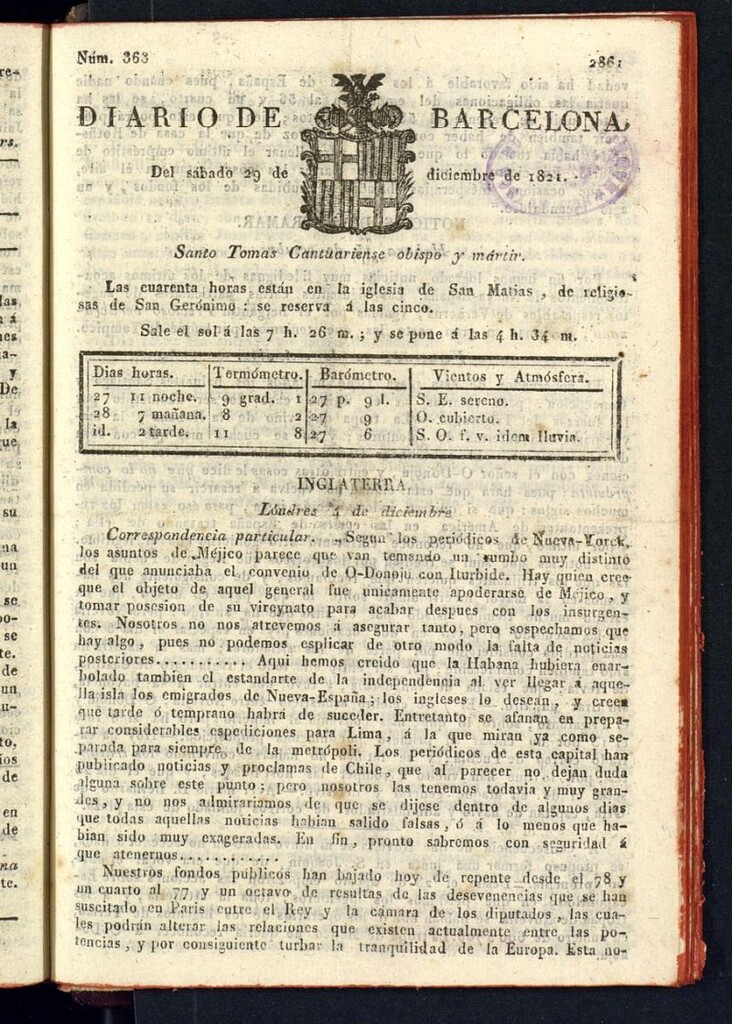 Núm. 363
2861
DIARIO DE BARCELONA,
Del sábado 29 de diciembre de 1821.
Santo Tomas Cantuariense obispo y mártir.
Las cuarenta horas están en la iglesia de San Matias, de religio-
sas de San Gerónimo: se reserva á las cinco.
Sale el sol á las 7 h. 26 m.; y se pone á las 4 h. 34 m.
Dias horas. Termómetro. Barómetro. Vientos y Atmósfera.
27 11 noche. 9 grad. 1 27 p. 9 l. S. E. sereno.
28 7 mañana. 8 2 27 9 O. cubierto.
id. 2 tarde. 11 8 27 6 S. O. f. v. idem lluvia.
INGLATERRA.
Lóndres 4 de diciembre
Correspondencia particular. „Segun los periódicos de Nueva-Yorck,
los asuntos de Méjico parece que van temando un rumbo muy distinto
del que anunciaba el convenio de O-Donojú con Iturbide. Hay quien cree
que el objeto de aquel general fue unicamente apoderarse de Méjico, y
tomar posesion de su vireynato para acabar despues con los insurgen-
tes. Nosotros no nos atrevemos á asegurar tanto, pero sospechamos que
hay algo, pues no podemos esplicar de otro modo la falta de noticias
posteriores........... Aqui hemos creido que la Habana hubiera enar-
bolado tambien el estandarte de la independencia al ver llegar á aque-
lla isla los emigrados de Nueva-España; los ingleses lo desean, y creen
que tarde ó temprano habrá de suceder. Entretanto se afanan en prepa-
rar considerables espediciones para Lima, á la que miran ya como se-
parada para siempre de la metrópoli. Los periódicos de esta capital han
publicado noticias y proclamas de Chile, que al parecer no dejan duda
alguna sobre este punto; pero nosotros las tenemos todavia y muy gran-
des, y no nos admirariamos de que se dijese dentro de algunos dias
que todas aquellas noticias habian salido falsas, ó á lo menos que ha-
bian sido muy exageradas. En fin, pronto sabremos con seguridad á
que atenernos............
Nuestros fondos públicos han bajado hoy de repente desde el 78 y
un cuarto al 77 y un octavo de resultas de las desevenencias que se han
suscitado en Paris entre el Rey y la cámara de los diputados, las cua-
les podrán alterar las relaciones que existen actualmente entre las po-
tencias, y por consiguiente turbar la tranquilidad de la Europa. Esta no-